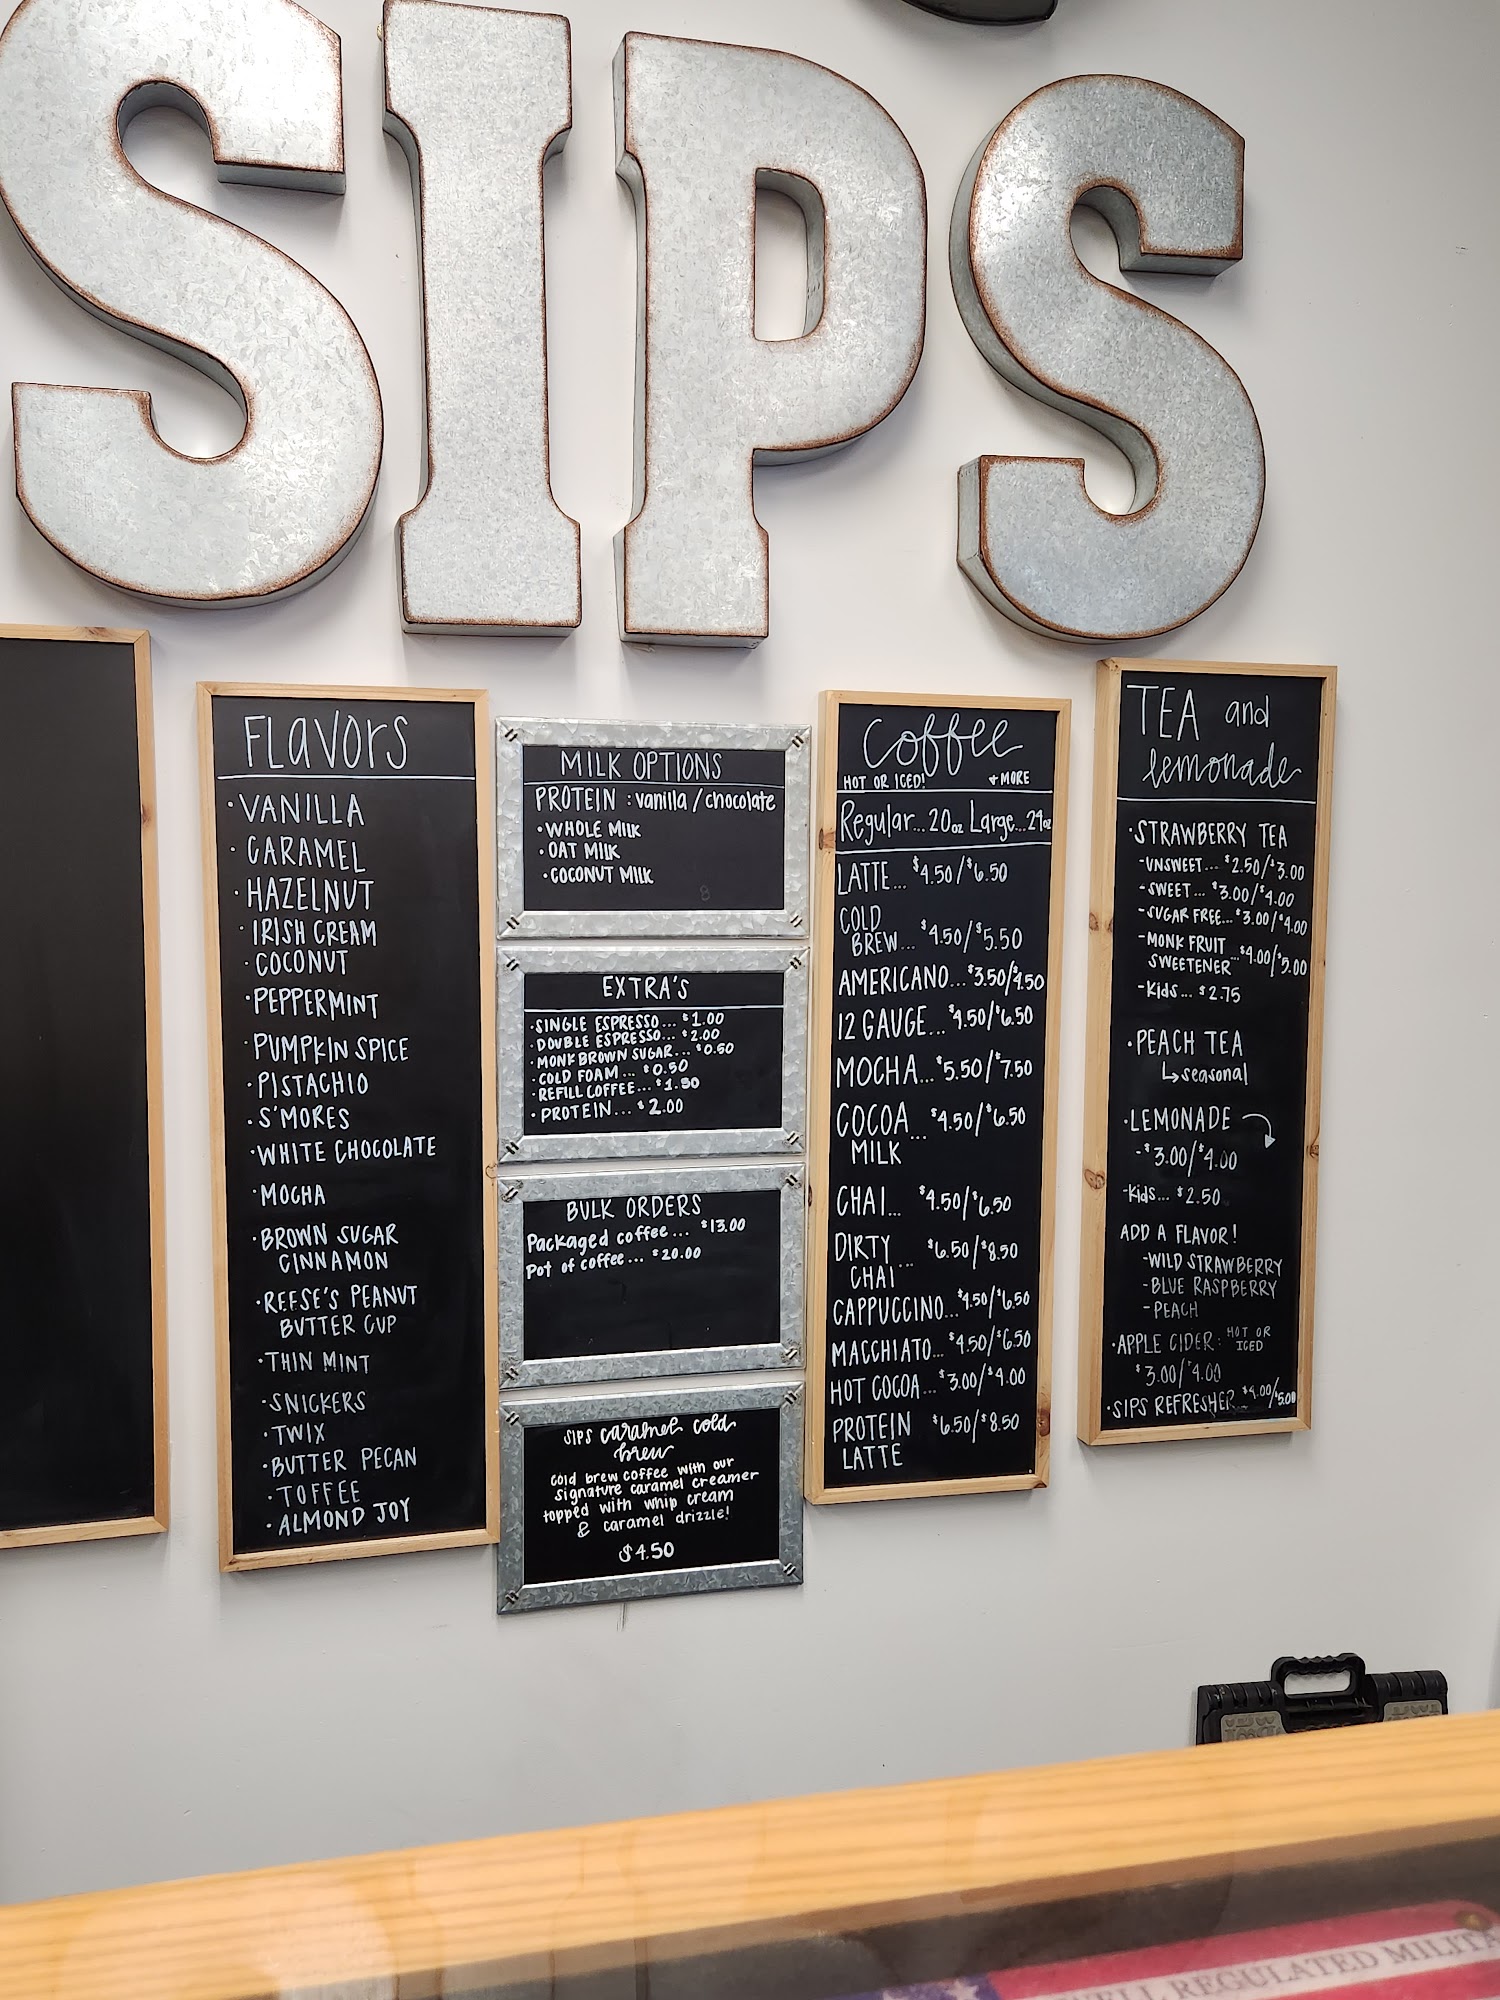 SIPS
FLavors
·VANILLA
·CARAMEL
·HAZELNUT
·IRISH CREAM
·COCONUT
·PEPPERMINT
·PUMPKIN SPICE
·PISTACHIO
·S'MORES
·WHITE CHOCOLATE
·MOCHA
·BROWN SUGAR
CINNAMON
·REESE'S PEANUT
BUTTER CUP
·THIN MINT
·SNICKERS
·TWIX
·BUTTER PECAN
·TOFFEE
·ALMOND JOY
MILK OPTIONS
PROTEIN : vanilla / chocolate
·WHOLE MILK
·OAT MILK
·COCONUT MILK
EXTRA'S
·SINGLE ESPRESSO... $1.00
·DOUBLE ESPRESSO... $2.00
·MONK BROWN SUGAR... $0.50
·COLD FOAM... $0.50
·REFILL COFFEE... $1.50
·PROTEIN... $2.00
BULK ORDERS
Packaged coffee... $13.00
Pot of coffee... $20.00
SIPS caramel cold
brew
cold brew coffee with our
signature caramel creamer
topped with whip cream
& caramel drizzle!
$4.50
Coffee
HOT OR ICED! + MORE
Regular...20oz Large...24oz
LATTE... $4.50/$6.50
COLD
BREW... $4.50/$5.50
AMERICANO... $3.50/$4.50
12 GAUGE... $4.50/$6.50
MOCHA... $5.50/$7.50
COCOA ... $4.50/$6.50
MILK
CHAI... $4.50/$6.50
DIRTY ... $6.50/$8.50
CHAI
CAPPUCCINO... $4.50/$6.50
MACCHIATO... $4.50/$6.50
HOT COCOA... $3.00/$4.00
PROTEIN $6.50/$8.50
LATTE
TEA and
lemonade
·STRAWBERRY TEA
-UNSWEET... $2.50/$3.00
-SWEET... $3.00/$4.00
-SUGAR FREE... $3.00/$4.00
-MONK FRUIT
SWEETENER... $4.00/$5.00
-Kids... $2.75
·PEACH TEA
↳seasonal
·LEMONADE
-$3.00/$4.00
-Kids... $2.50
ADD A FLAVOR!
-WILD STRAWBERRY
-BLUE RASPBERRY
-PEACH
·APPLE CIDER: HOT OR
ICED
$3.00/$4.00
·SIPS REFRESHER... $4.00/$5.00
WELL REGULATED MILITA